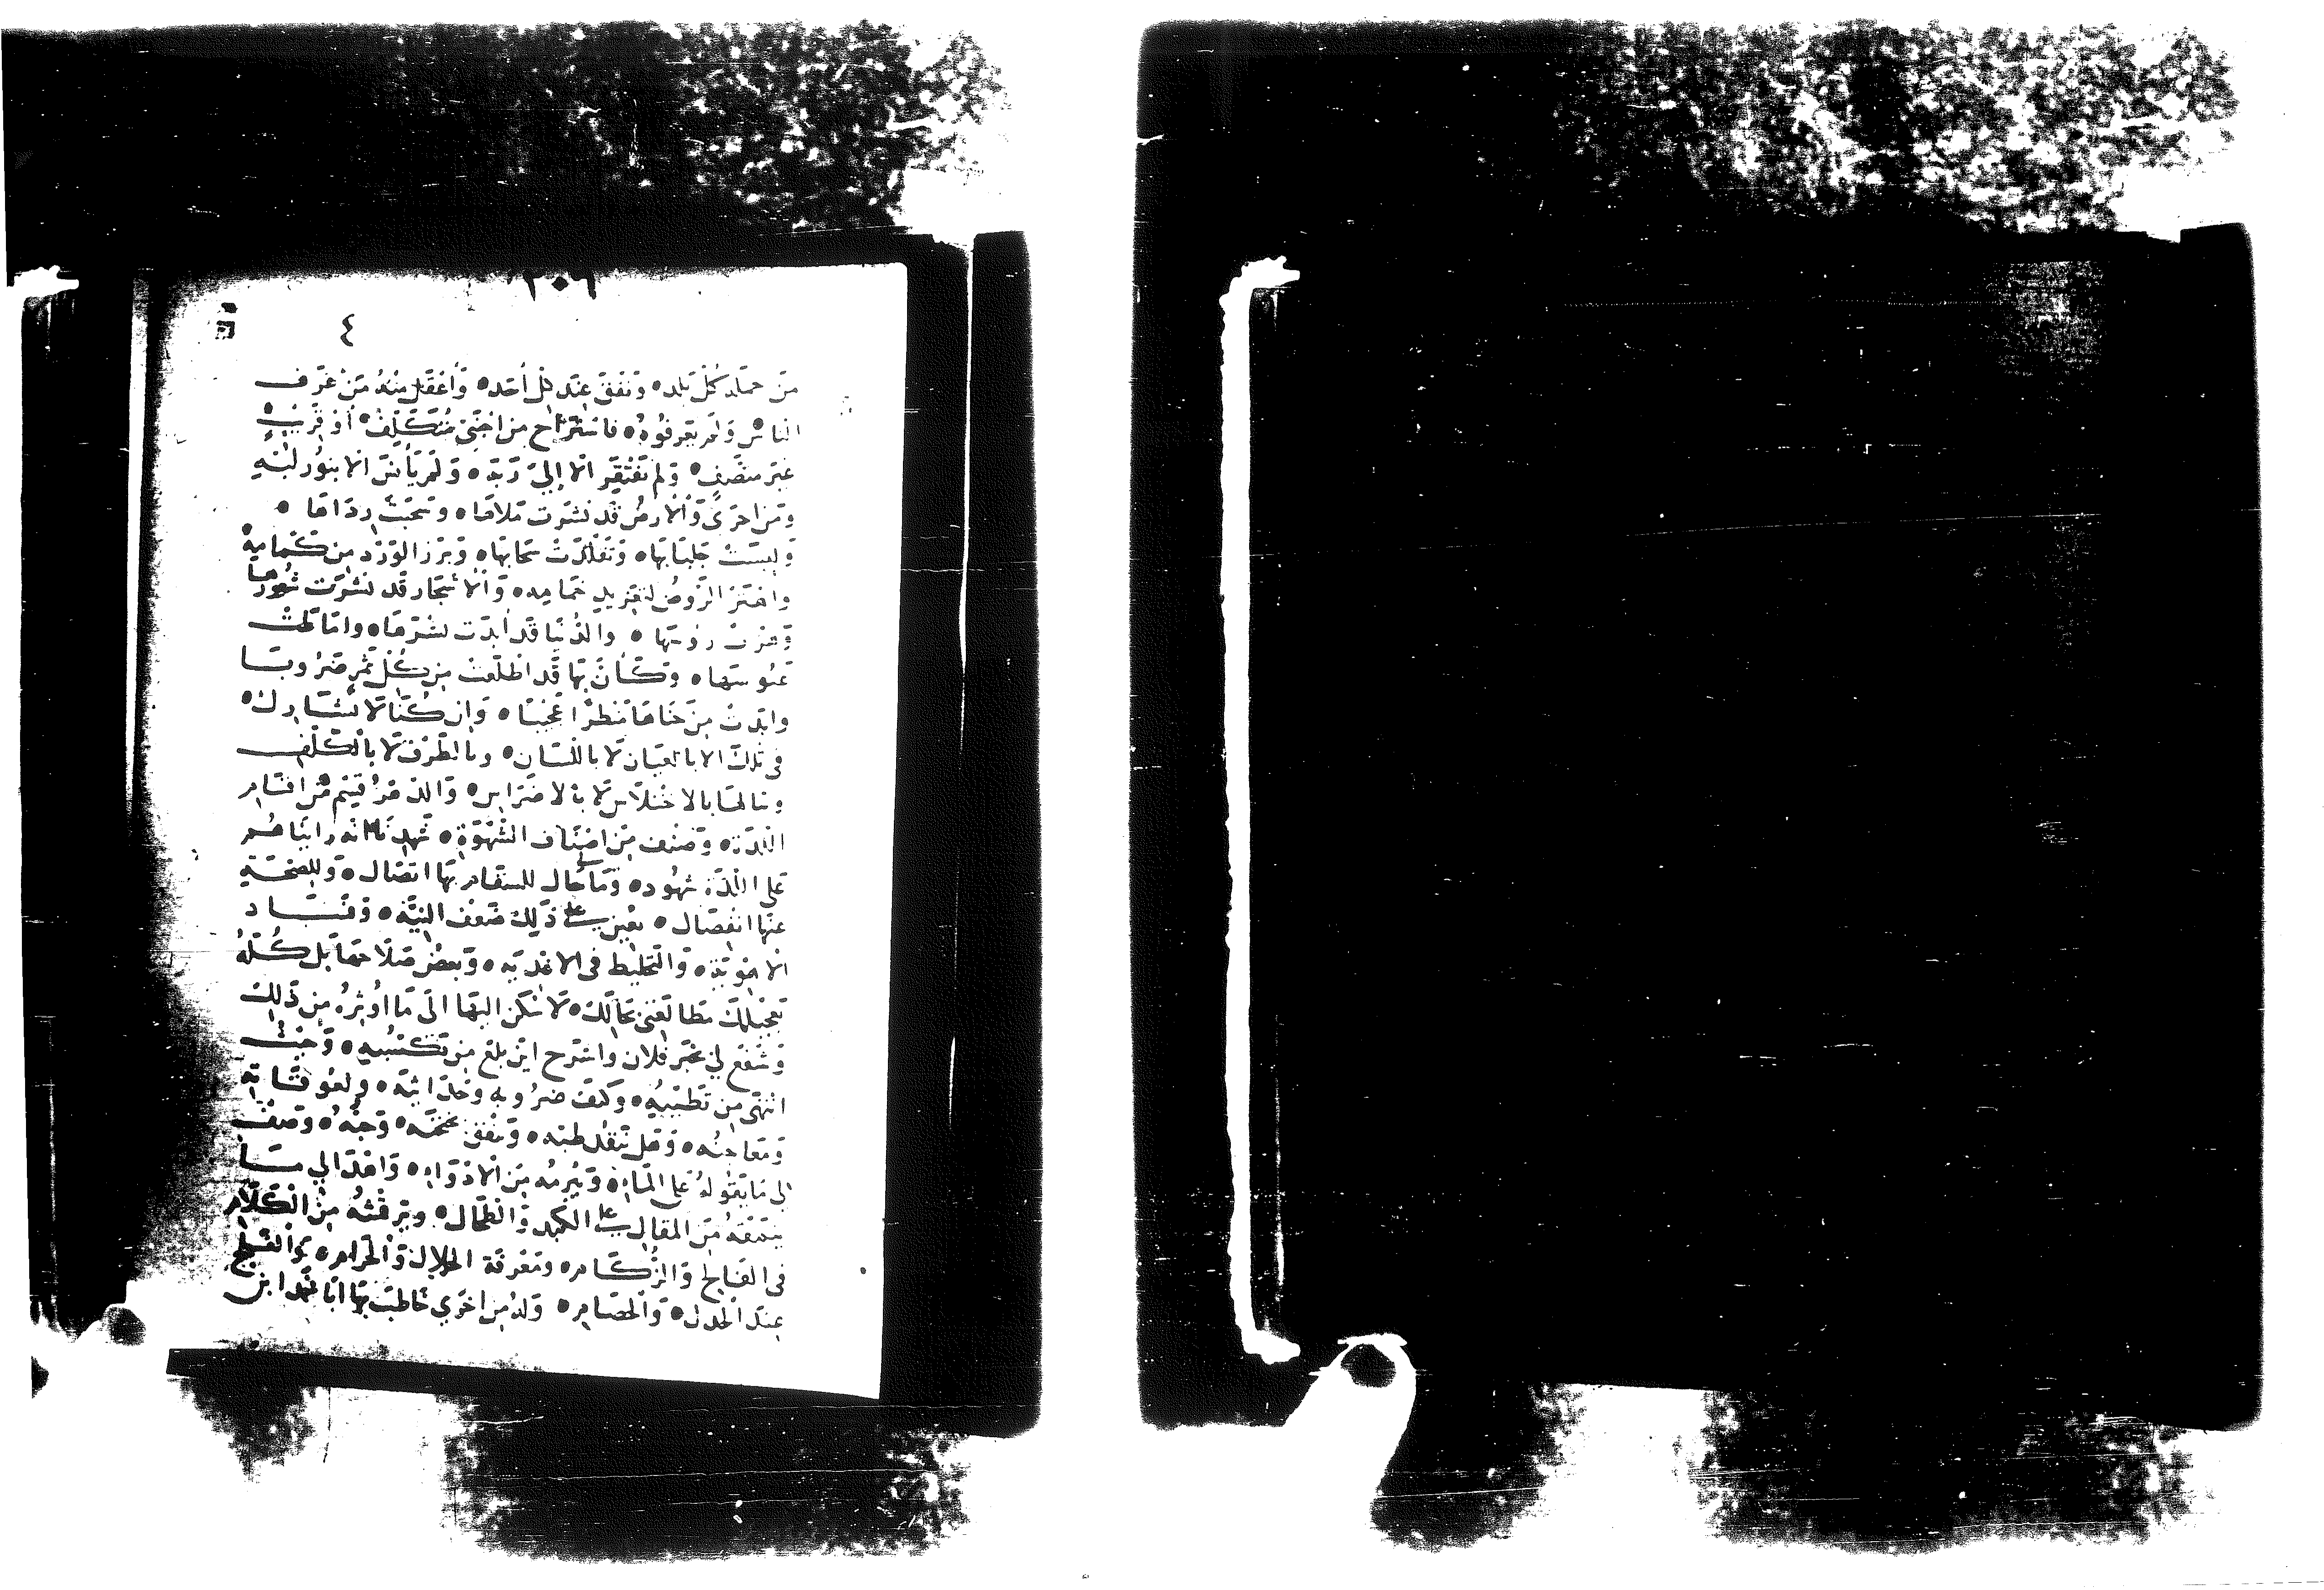 ٢٠٩
٤
من حمله كل بلد ٥ ونفق عند كل أحد ٥ وأعقل منه من عرف
الناس ولم يعرفوه ٥ فاستراح من اجنبي متكلف ٥ أو قريب
غير منصف ٥ ولم تفتقر الا إلي ربه ٥ ولم يأنس الا بنور لبه
ومن اخرى والارض قد نشرت ملاها ٥ وسحبت رداها ٥
ولبست جلبابها ٥ وتقلدت سحابها ٥ وبرز الورد من كمامه
واهتز الروض لتغريد حمامه ٥ والاشجار قد نشرت شعورها
وهزت رؤسها ٥ والدنيا قد أبدت بشرها ٥ واماطت
عبوسها ٥ وكأن بها قد اطلعت من كل ثمر ضروبا
وابدت من جناها منظرا عجيبا ٥ وان كنا لا نشارك ٥
في تلك الا بالعيان لا باللسان ٥ وبالطرف لا بالكف
ونالها بالاختلاس لا بالاضراس ٥ والذ قسم من اقسام
اللذة ٥ وصنف من اصناف الشهوة ٥
على اللذة شهود ٥ وما حال للسقام بها اتصال ٥ وللصحة
عنها انفصال ٥ يعين على ذلك ضعف البنية ٥ وفساد
الاهوية ٥ والتخليط في الاغذية ٥ وبعض صلاحها بل كله
تعجيلك مطالعتي بحالك ٥ لاسكن اليها الى ما اوثره من ذلك
وشفع لي بخبر فلان واشرح اين بلغ من تكسبه ٥ وحيث
انتهى من تطببه ٥ وكيف ضروبه وحداثته ٥
ومعاجنه ٥ وهل تنقل طبه ٥ وينفق ٥ وصف
لي ما يقوله على الماء ٥ ويبرمه من الادواء ٥ واهد الي ما
ينمقه من المقال على الكبد والطحال ٥ من الكلام
في الفالج والزكام ٥ ومعرفة الحلال والحرام ٥
عند الجدل ٥ والخصام ٥ وله من اخري خاطب بها ابا ابن